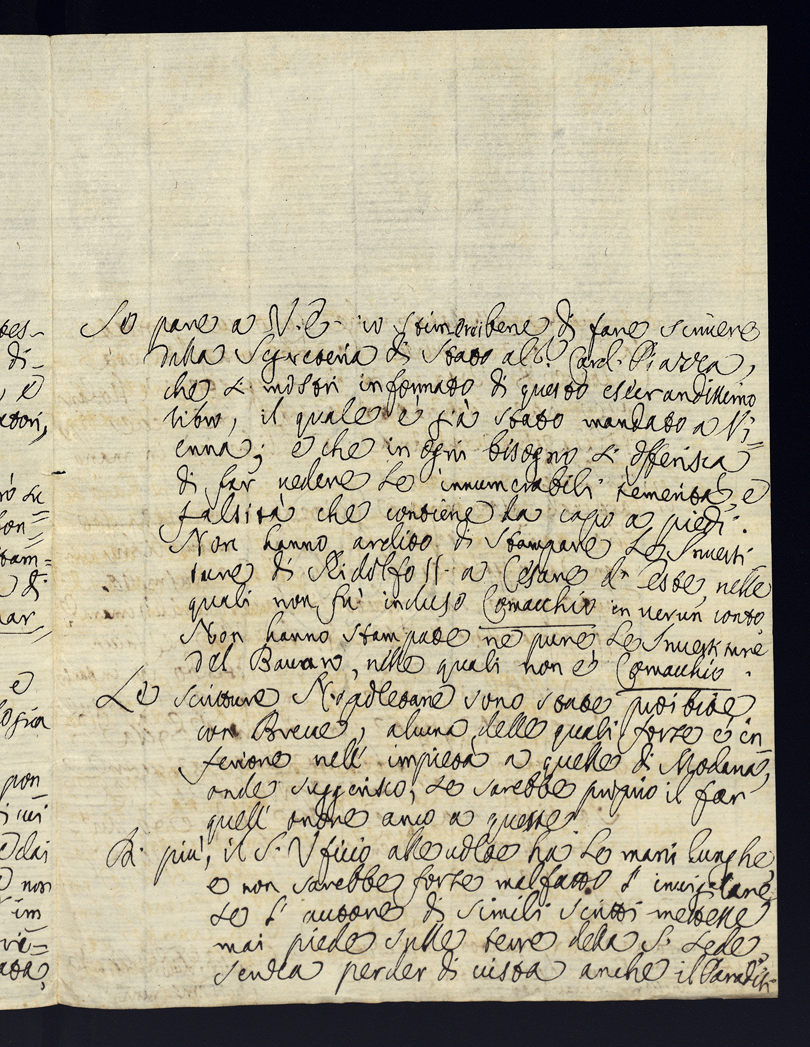 tes-
di-
, e
atori,
rò se
son=
tam=
di
nar
e
logia
pon
i cui
dai
non
im
re=
ata,
Se pare a V. E. io stimerei bene di fare scrivere
dalla Segreteria di Stato all' Card. Piazza,
che si mostri informato di questo esecrandissimo
libro, il quale è già stato mandato a Vi=
enna; e che in ogni bisogno si offerisca
di far vedere le innumerabili temerità, e
falsità che contiene da capo a piedi.
Non hanno ardito di stampare le Investi
ture di Ridolfo II. a Cesare d' Este, nelle
quali non fu' incluso Comacchio in verun conto
Non hanno stampate nè pure le Investiture
del Bavaro, nelle quali non è Comacchio.
Le scritture Napoletane sono state proibite
con Breve, alcuna delle quali forse è in
feriore nell' impietà a quelle di Modana,
onde suggerisco, se sarebbe proprio il far
quell' onore anco a queste.
Di più, il S. Ufficio alle volte ha le mani lunghe
e non sarebbe forse malfatto d' invigilare
se l' autore di simili scritti mettesse
mai piede sulle terre della S. Sede
senza perder di vista anche il